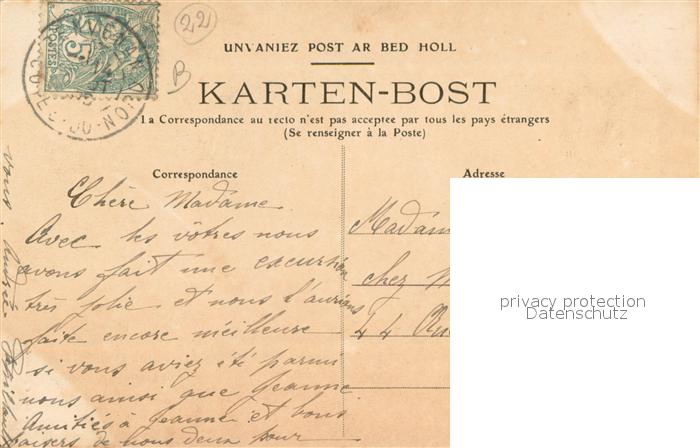 22
B
5
POSTES
UNVANIEZ POST AR BED HOLL
KARTEN-BOST
La Correspondance au recto n'est pas acceptee par tous les pays étrangers
(Se renseigner à la Poste)
Correspondance
Adresse
Chère Madame
Avec les vôtres nous
avons fait une excursion
très jolie et nous l'aurions
faite encore meilleure
si vous aviez été parmi
nous ainsi que Jeanne
Amitiés à Jeanne et bons
baisers de nous deux pour
vous. Andrée
Madam
chez M
44 Ru
privacy protection
Datenschutz